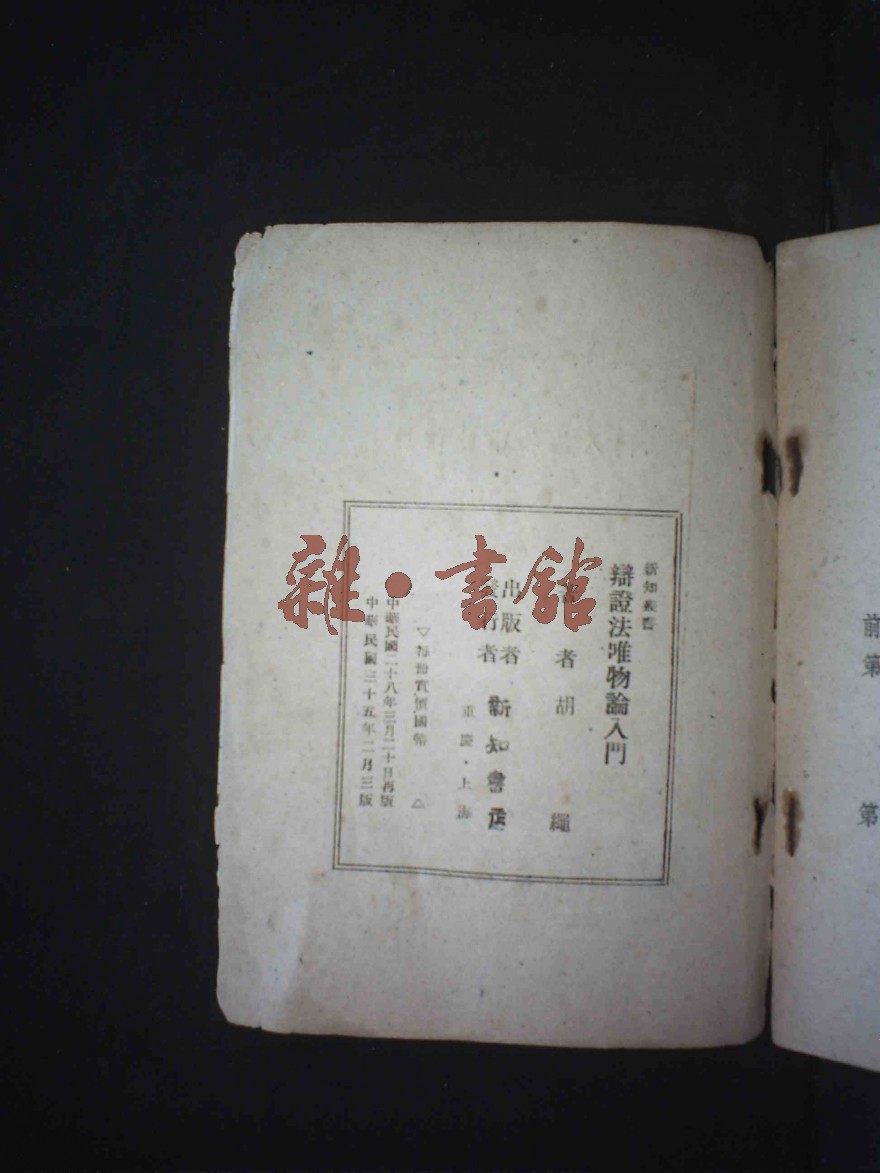 新知叢書
辯證法唯物論入門
著者胡繩
出版者
發行者
新知書店
重慶・上海
▽每冊實價國幣 △
中華民國二十八年三月二十日再版
中華民國三十五年二月三版
雜・書館
前
第
第